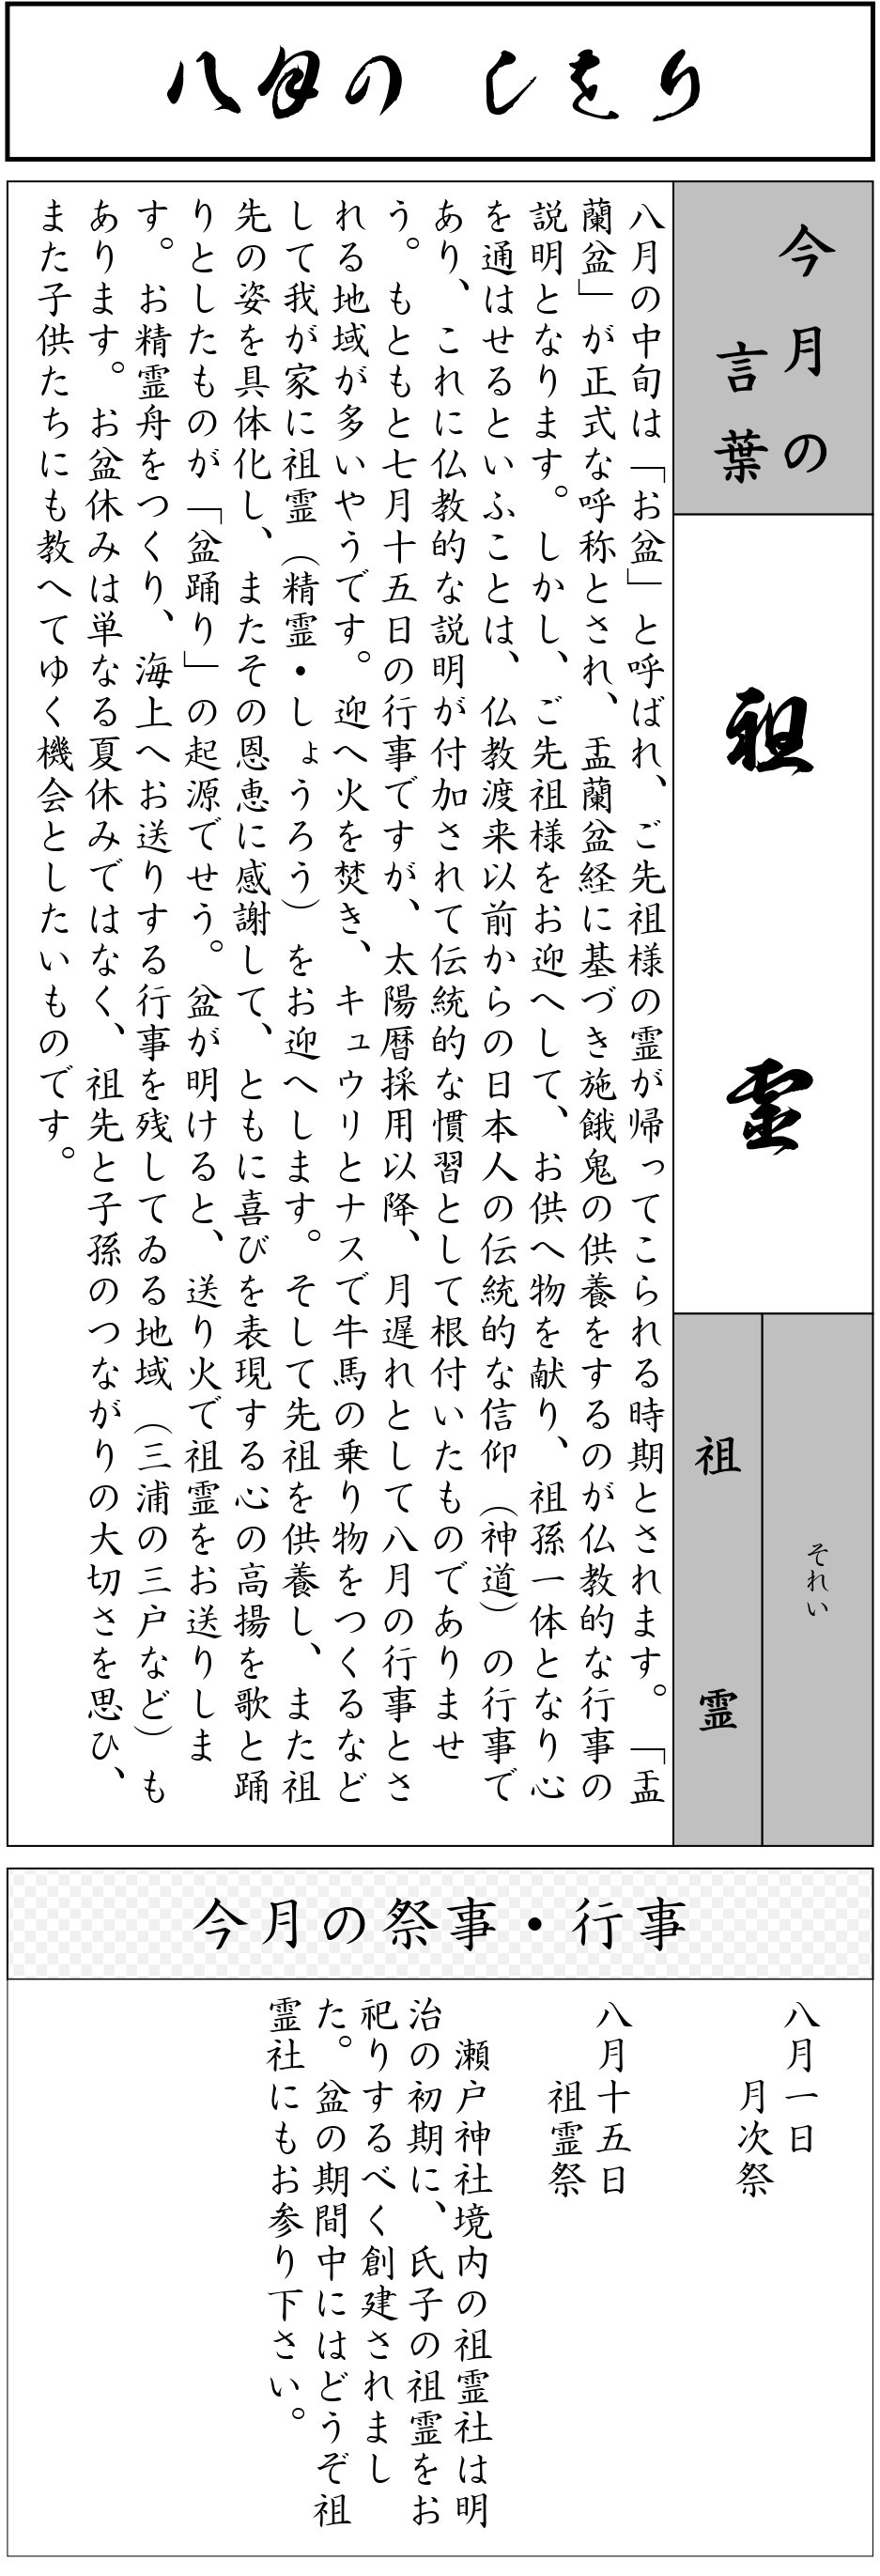 八月の しをり
今月の
言葉
祖霊
それい
祖霊
八月の中旬は「お盆」と呼ばれ、ご先祖様の霊が帰ってこられる時期とされます。「盂
蘭盆」が正式な呼称とされ、盂蘭盆経に基づき施餓鬼の供養をするのが仏教的な行事の
説明となります。しかし、ご先祖様をお迎へして、お供へ物を献り、祖孫一体となり心
を通はせるといふことは、仏教渡来以前からの日本人の伝統的な信仰（神道）の行事で
あり、これに仏教的な説明が付加されて伝統的な慣習として根付いたものでありませ
う。もともと七月十五日の行事ですが、太陽暦採用以降、月遅れとして八月の行事とさ
れる地域が多いやうです。迎へ火を焚き、キュウリとナスで牛馬の乗り物をつくるなど
して我が家に祖霊（精霊・しょうろう）をお迎へします。そして先祖を供養し、また祖
先の姿を具体化し、またその恩恵に感謝して、ともに喜びを表現する心の高揚を歌と踊
りとしたものが「盆踊り」の起源でせう。盆が明けると、送り火で祖霊をお送りしま
す。お精霊舟をつくり、海上へお送りする行事を残してゐる地域（三浦の三戸など）も
あります。お盆休みは単なる夏休みではなく、祖先と子孫のつながりの大切さを思ひ、
また子供たちにも教へてゆく機会としたいものです。
今月の祭事・行事
八月一日
月次祭
八月十五日
祖霊祭
瀬戸神社境内の祖霊社は明
治の初期に、氏子の祖霊をお
祀りするべく創建されまし
た。盆の期間中にはどうぞ祖
霊社にもお参り下さい。